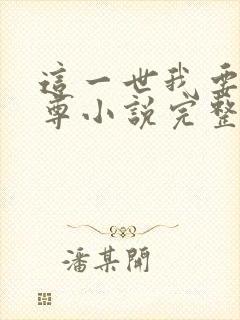 這一世我要
尊小說完整
潘某開